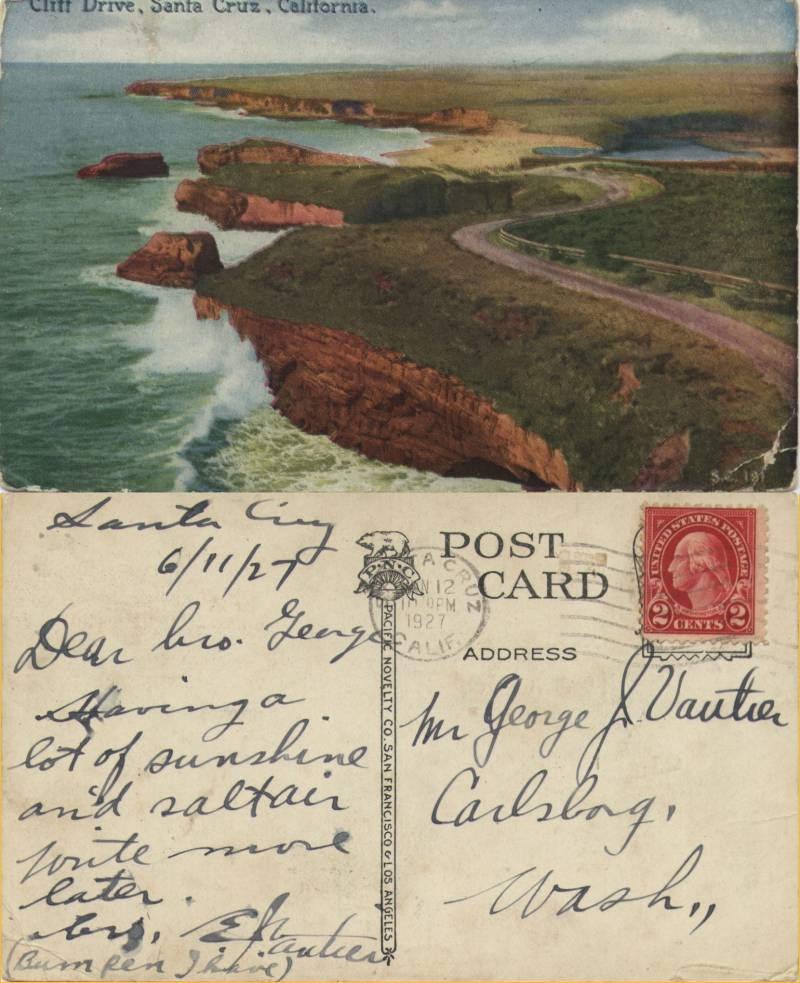 Cliff Drive, Santa Cruz, California.
Santa Cruz
6/11/27
Dear bro. George
Having a
lot of sunshine
and salt air
write more
later.
bro, E J Vautier
(Bum pen I have)
P·N·C
PACIFIC NOVELTY CO. SAN FRANCISCO & LOS ANGELES
A CRUZ
N 12
PM
1927
CALIF.
POST
CARD
ADDRESS
UNITED STATES POSTAGE
2 CENTS 2
Mr George J. Vautier
Carlsborg,
Wash,,